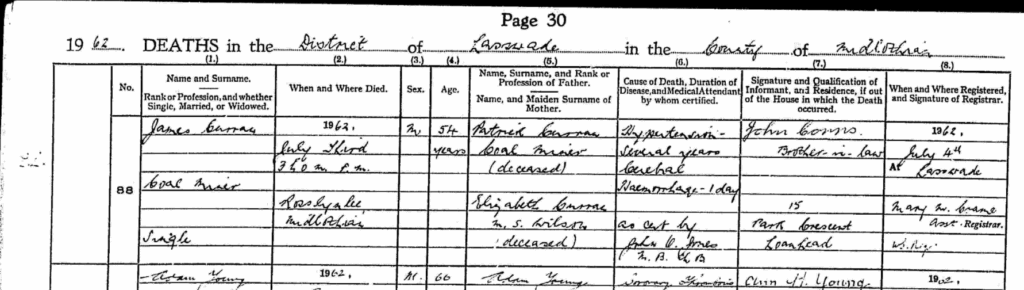 Page 30
1962. DEATHS in the District of Lasswade in the County of Midlothian
(1.) (2.) (3.) (4.) (5.) (6.) (7.) (8.)
No. Name and Surname. When and Where Died. Sex. Age. Name, Surname, and Rank or Profession of Father. Cause of Death, Duration of Disease, and Medical Attendant by whom certified. Signature and Qualification of Informant, and Residence, if out of the House in which the Death occurred. When and Where Registered, and Signature of Registrar.
Rank or Profession, and whether Single, Married, or Widowed. Name, and Maiden Surname of Mother.
James Curran 1962, M 54 Patrick Curran Hypertension - John Conns. 1962,
July Third years Coal Miner Several years Brother-in-law July 4th
3h 0m P.m. (deceased) Cerebral At Lasswade
88 Coal Miner Haemorrhage - 1 day
Rosslynlee Elizabeth Curran 15 Mary M.
Midlothian m.s. Wilson as cert by Park Crescent Asst. Registrar.
Single (deceased) John C. Jones Loanhead
M.B. Ch B
Adam Young 1962, M. 66 Adam Young Ann Young 1962.